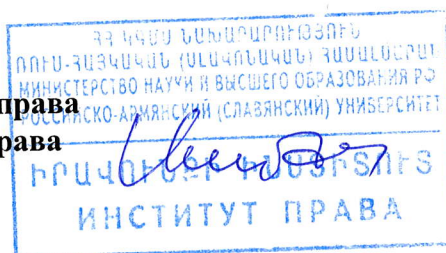 ՌԴ ԿԳԲԿ ՆԱԽԱՐԱՐՈՒԹՅՈՒՆ
ՌՈՒՍ-ՀԱՅԿԱԿԱՆ (ՍԼԱՎՈՆԱԿԱՆ) ՀԱՄԱԼՍԱՐԱՆ
МИНИСТЕРСТВО НАУКИ И ВЫСШЕГО ОБРАЗОВАНИЯ РФ
права
РОССИЙСКО-АРМЯНСКИЙ (СЛАВЯНСКИЙ) УНИВЕРСИТЕТ
рава
ԻՐԱՎՈՒՆՔԻ ԻՆՍՏԻՏՈՒՏ
ИНСТИТУТ ПРАВА